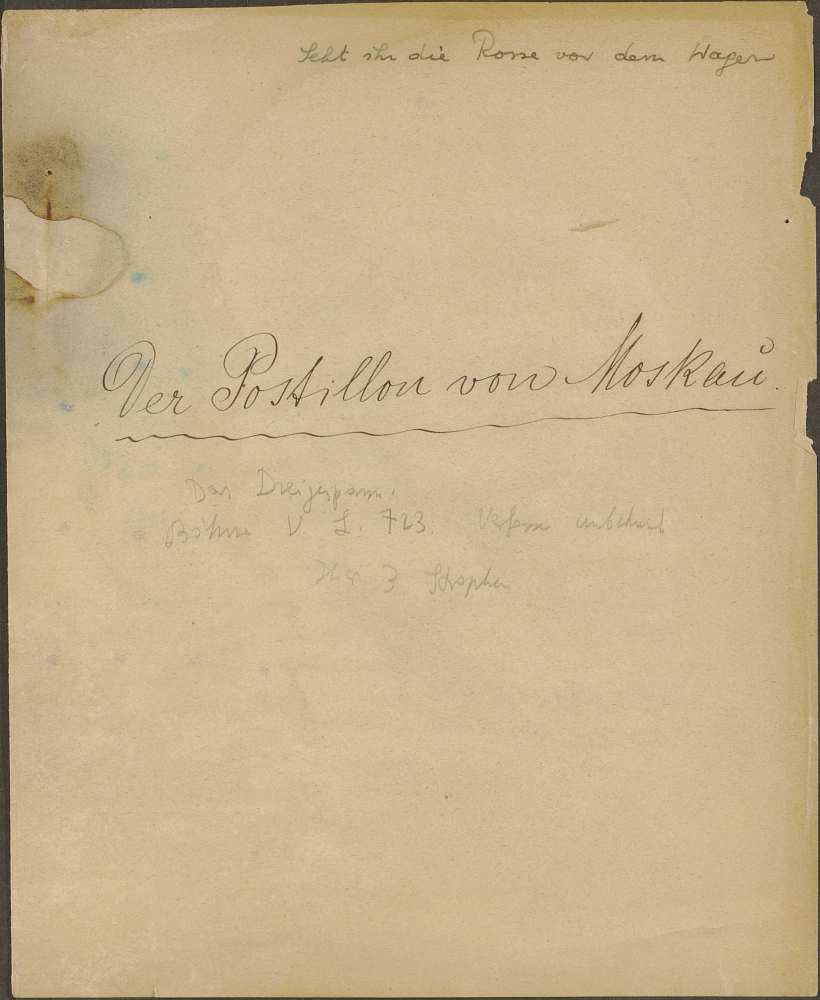 Seht ihr die Rosse vor dem Wagen
Der Postillon von Moskau.
Das Dreigespann.
Böhme V. L. 723. Verfasser unbekannt
Hier 3 Strophen